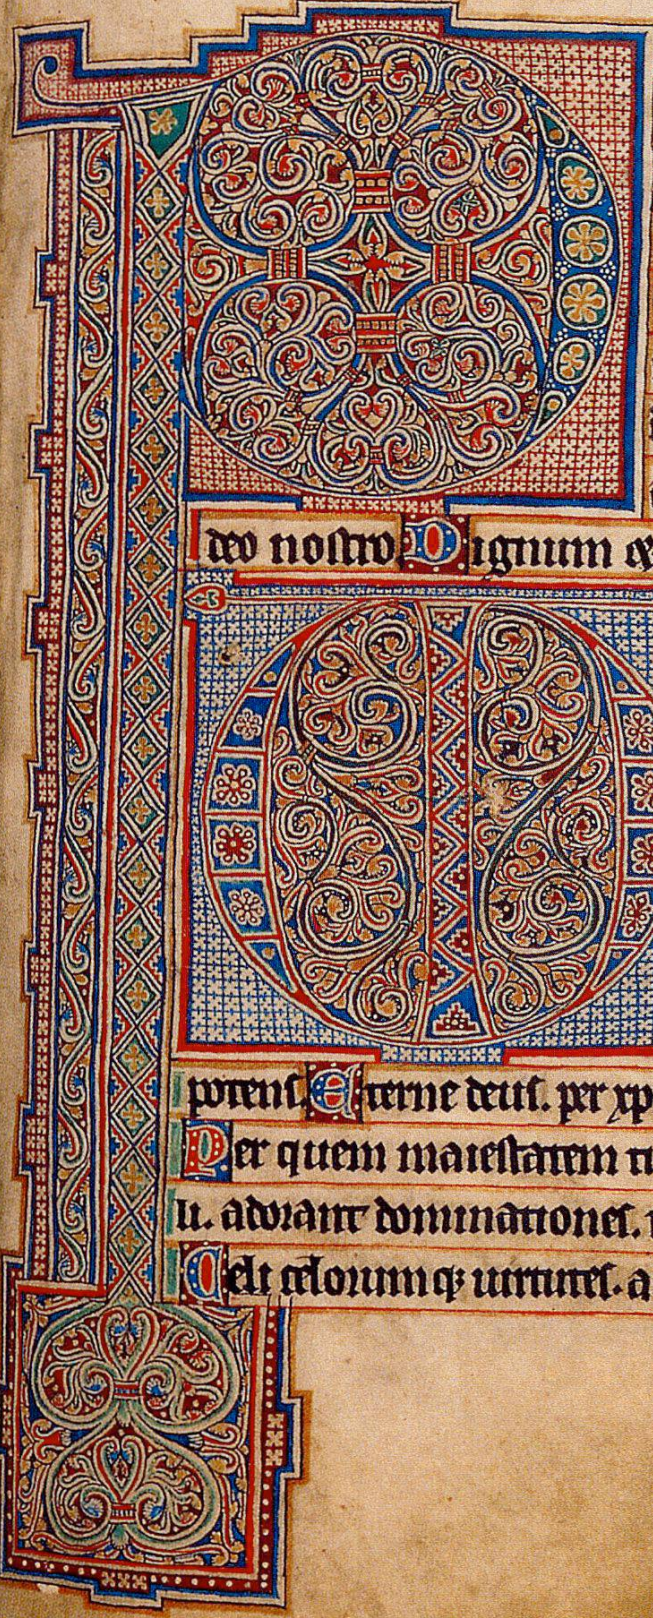 P
deo nostro Dignum
potens. Eterne deus. per xp
Per quem maiestatem
li. adorant dominationes.
Celi celorumq; uirtutes. a